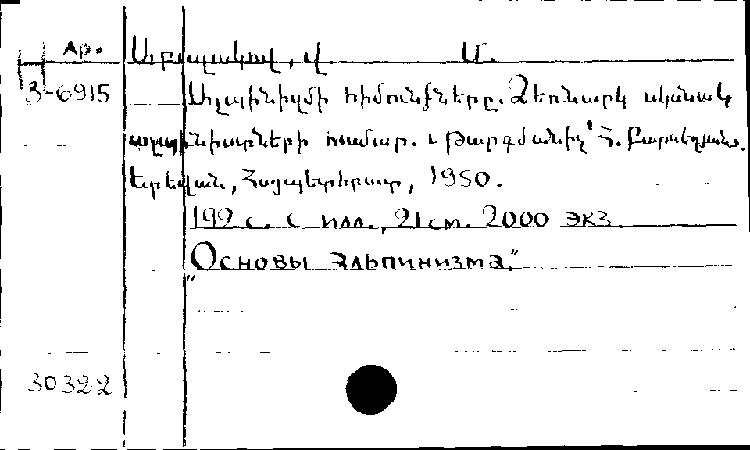 Ар.
Աբալակով, Վ. Մ.
3-6915
Ալպինիզմի հիմունքները. Ձեռնարկ սկսնակ
ալպինիստների համար. Թարգմանիչ՝ Հ.
Երեվան, Հայպետհրատ, 1950.
192 с. с илл., 21 см. 2000 экз.
"Основы альпинизма."
30322